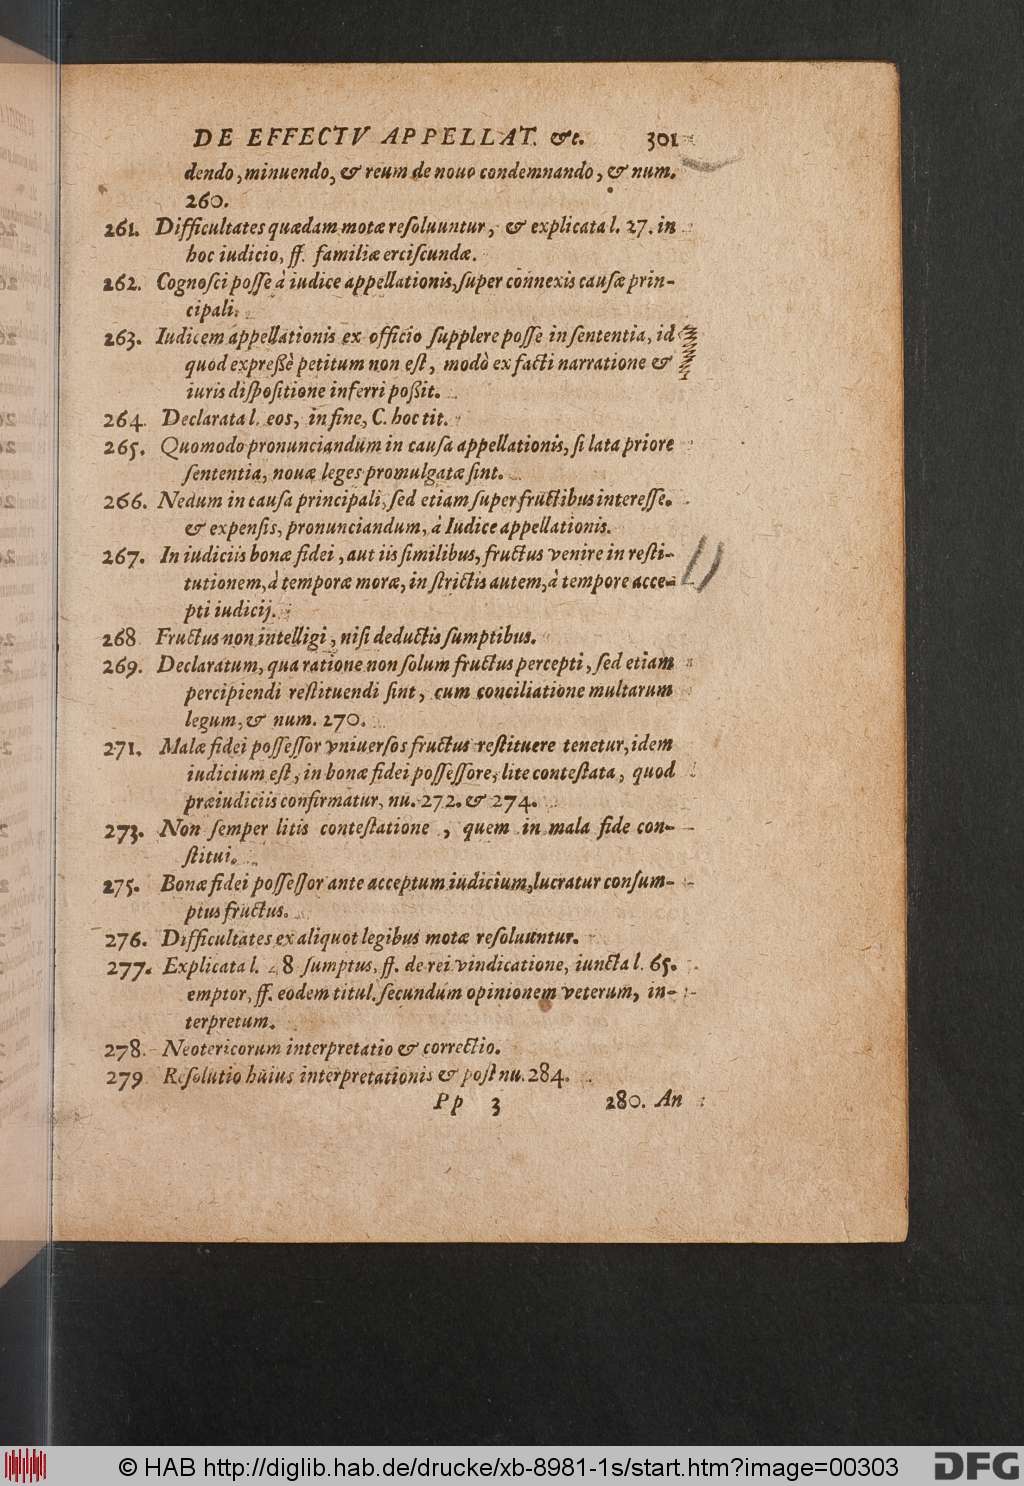 DE EFFECTV APPELLAT. &c. 301
dendo, minuendo, & reum de nouo condemnando, & num.
260.
261. Difficultates quædam motæ reſoluuntur, & explicata l. 27. in
hoc iudicio, ff. familiæ erciſcundæ.
262. Cognoſci poſſe à iudice appellationis, ſuper connexis cauſæ prin-
cipali.
263. Iudicem appellationis ex officio ſupplere poſſe in ſententia, id
quod expreßè petitum non eſt, modò ex facti narratione &
iuris diſpoſitione inferri poßit.
264. Declarata l. eos, in fine, C. hoc tit.
265. Quomodo pronunciandum in cauſa appellationis, ſi lata priore
ſententia, nouæ leges promulgatæ ſint.
266. Nedum in cauſa principali, ſed etiam ſuper fructibus intereſſe.
& expenſis, pronunciandum, à Iudice appellationis.
267. In iudiciis bonæ fidei, aut iis ſimilibus, fructus venire in reſti-
tutionem, à temporæ moræ, in ſtrictis autem, à tempore acce-
pti iudicij.
268 Fructus non intelligi, niſi deductis ſumptibus.
269. Declaratum, qua ratione non ſolum fructus percepti, ſed etiam
percipiendi reſtituendi ſint, cum conciliatione multarum
legum, & num. 270.
271. Malæ fidei poſſeſſor vniuerſos fructus reſtituere tenetur, idem
iudicium eſt, in bonæ fidei poſſeſſore, lite conteſtata, quod
præiudiciis confirmatur, nu. 272. & 274.
273. Non ſemper litis conteſtatione, quem in mala fide con-
ſtitui.
275. Bonæ fidei poſſeſſor ante acceptum iudicium, lucratur conſum-
ptus fructus.
276. Difficultates ex aliquot legibus motæ reſoluuntur.
277. Explicata l. 48 ſumptus, ff. de rei vindicatione, iuncta l. 65.
emptor, ff. eodem titul. ſecundum opinionem veterum, in-
terpretum.
278. Neotericorum interpretatio & correctio.
279 Reſolutio huius interpretationis & poſt nu. 284.
Pp 3 280. An
© HAB http://diglib.hab.de/drucke/xb-8981-1s/start.htm?image=00303
DFG